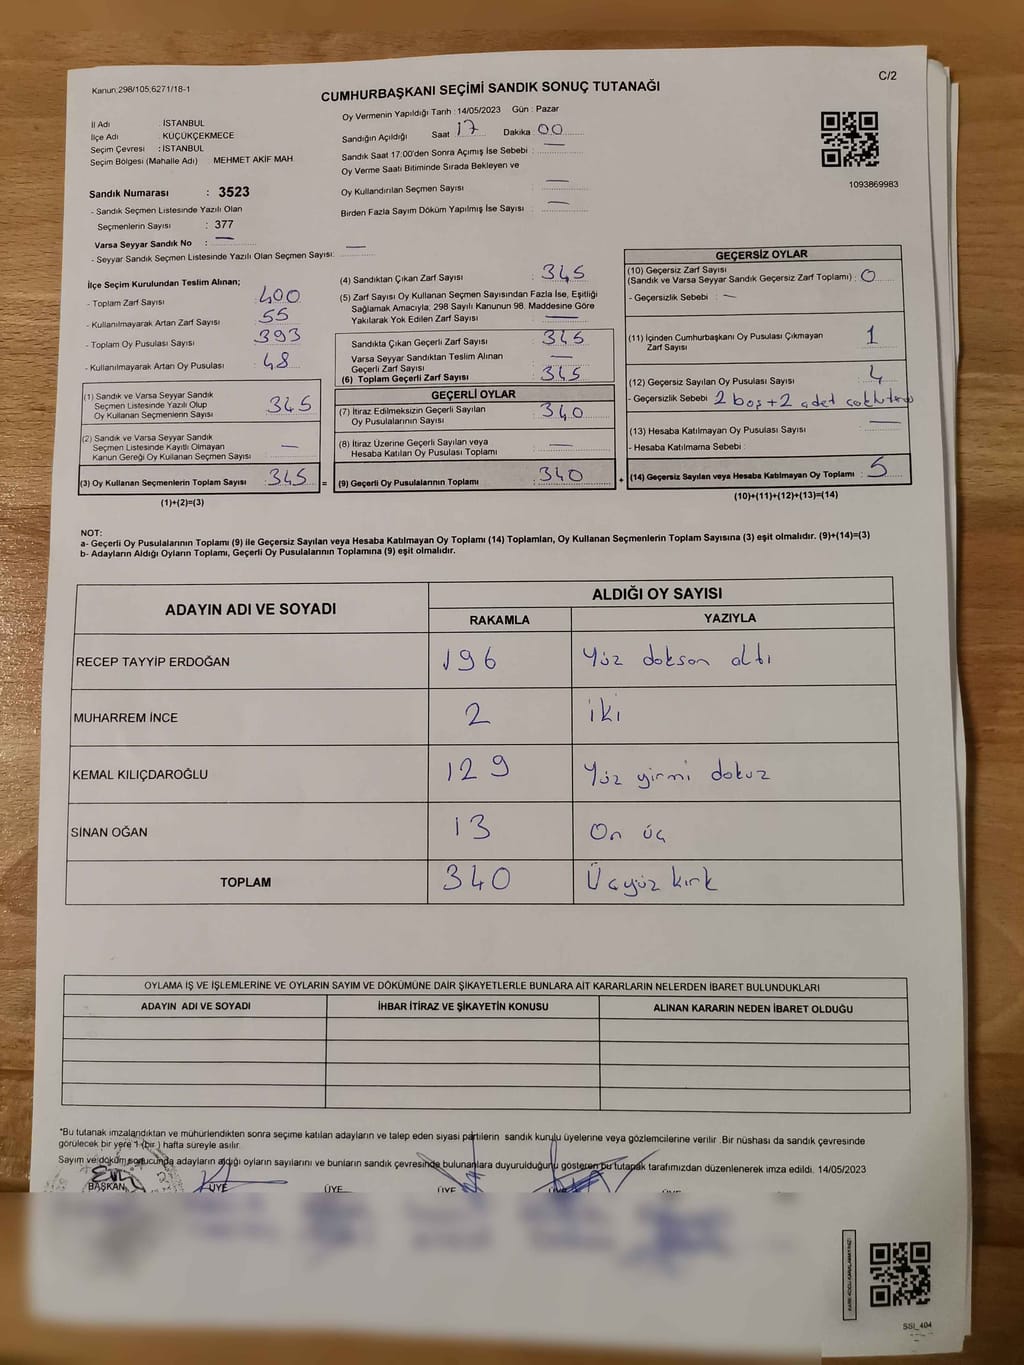 C/2
Kanun:298/105,6271/18-1
CUMHURBAŞKANI SEÇİMİ SANDIK SONUÇ TUTANAĞI
Oy Vermenin Yapıldığı Tarih : 14/05/2023 Gün : Pazar
İl Adı : İSTANBUL
İlçe Adı : KÜÇÜKÇEKMECE
Seçim Çevresi : İSTANBUL
Seçim Bölgesi (Mahalle Adı) MEHMET AKİF MAH.
Sandığın Açıldığı Saat 17 Dakika 00
Sandık Saat 17:00'den Sonra Açımış İse Sebebi : —
Oy Verme Saati Bitiminde Sırada Bekleyen ve
Oy Kullandırılan Seçmen Sayısı : —
Birden Fazla Sayım Döküm Yapılmış İse Sayısı : —
1093869983
Sandık Numarası : 3523
- Sandık Seçmen Listesinde Yazılı Olan
Seçmenlerin Sayısı : 377
Varsa Seyyar Sandık No : —
- Seyyar Sandık Seçmen Listesinde Yazılı Olan Seçmen Sayısı: —
İlçe Seçim Kurulundan Teslim Alınan;
- Toplam Zarf Sayısı : 400
- Kullanılmayarak Artan Zarf Sayısı : 55
- Toplam Oy Pusulası Sayısı : 393
- Kullanılmayarak Artan Oy Pusulası : 48
(1) Sandık ve Varsa Seyyar Sandık
Seçmen Listesinde Yazılı Olup
Oy Kullanan Seçmenlerin Sayısı : 345
(2) Sandık ve Varsa Seyyar Sandık
Seçmen Listesinde Kayıtlı Olmayan
Kanun Gereği Oy Kullanan Seçmen Sayısı : —
(3) Oy Kullanan Seçmenlerin Toplam Sayısı : 345 =
(1)+(2)=(3)
(4) Sandıktan Çıkan Zarf Sayısı : 345
(5) Zarf Sayısı Oy Kullanan Seçmen Sayısından Fazla İse, Eşitliği
Sağlamak Amacıyla, 298 Sayılı Kanunun 98. Maddesine Göre
Yakılarak Yok Edilen Zarf Sayısı : —
Sandıkta Çıkan Geçerli Zarf Sayısı : 345
Varsa Seyyar Sandıktan Teslim Alınan
Geçerli Zarf Sayısı : —
(6) Toplam Geçerli Zarf Sayısı : 345
GEÇERLİ OYLAR
(7) İtiraz Edilmeksizin Geçerli Sayılan
Oy Pusulasının Sayısı : 340
(8) İtiraz Üzerine Geçerli Sayılan veya
Hesaba Katılan Oy Pusulası Toplamı : —
(9) Geçerli Oy Pusulalarının Toplamı : 340 +
GEÇERSİZ OYLAR
(10) Geçersiz Zarf Sayısı
(Sandık ve Varsa Seyyar Sandık Geçersiz Zarf Toplamı) : 0
- Geçersizlik Sebebi : —
(11) İçinden Cumhurbaşkanı Oy Pusulası Çıkmayan
Zarf Sayısı : 1
(12) Geçersiz Sayılan Oy Pusulası Sayısı : 4
- Geçersizlik Sebebi 2 boş + 2 adet
(13) Hesaba Katılmayan Oy Pusulası Sayısı : —
- Hesaba Katılmama Sebebi :
(14) Geçersiz Sayılan veya Hesaba Katılmayan Oy Toplamı : 5
(10)+(11)+(12)+(13)=(14)
NOT:
a- Geçerli Oy Pusulalarının Toplamı (9) ile Geçersiz Sayılan veya Hesaba Katılmayan Oy Toplamı (14) Toplamları, Oy Kullanan Seçmenlerin Toplam Sayısına (3) eşit olmalıdır. (9)+(14)=(3)
b- Adayların Aldığı Oyların Toplamı, Geçerli Oy Pusulalarının Toplamına (9) eşit olmalıdır.
ADAYIN ADI VE SOYADI ALDIĞI OY SAYISI
RAKAMLA YAZIYLA
RECEP TAYYİP ERDOĞAN 196 Yüz doksan altı
MUHARREM İNCE 2 iki
KEMAL KILIÇDAROĞLU 129 Yüz yirmi dokuz
SİNAN OĞAN 13 On üç
TOPLAM 340 Üçyüz kırk
OYLAMA İŞ VE İŞLEMLERİNE VE OYLARIN SAYIM VE DÖKÜMÜNE DAİR ŞİKAYETLERLE BUNLARA AİT KARARLARIN NELERDEN İBARET BULUNDUKLARI
ADAYIN ADI VE SOYADI İHBAR İTİRAZ VE ŞİKAYETİN KONUSU ALINAN KARARIN NEDEN İBARET OLDUĞU
*Bu tutanak imzalandıktan ve mühürlendikten sonra seçime katılan adayların ve talep eden siyasi partilerin sandık kurulu üyelerine veya gözlemcilerine verilir .Bir nüshası da sandık çevresinde
görülecek bir yere 1 (bir ) hafta süreyle asılır.
Sayım ve döküm sonucunda adayların aldığı oyların sayılarını ve bunların sandık çevresinde bulunanlara duyurulduğunu gösteren bu tutanak tarafımızdan düzenlenerek imza edildi. 14/05/2023
BAŞKAN ÜYE ÜYE ÜYE
SSİ_404